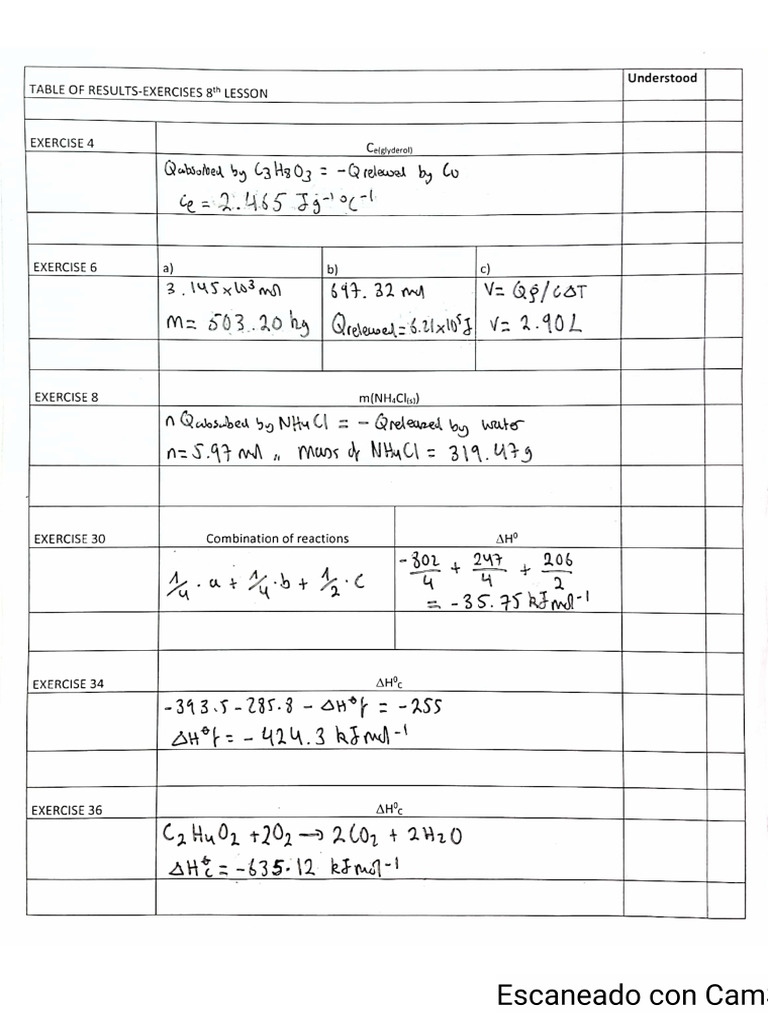 Understood
TABLE OF RESULTS-EXERCISES 8th LESSON
EXERCISE 4
Ce(glyderol)
Qabsorbed by C3H8O3 = -Qreleased by Cu
ce = 2.465 Jg⁻¹ºC⁻¹
EXERCISE 6 a) b) c)
3.145x10³ mol 697.32 mol V= Qρ/cΔT
m= 503.20 kg Qreleased = 6.21x10⁵J V= 2.90L
EXERCISE 8
m(NH₄Cl(s))
n Qabsorbed by NH4Cl = - Qreleased by water
n=5.97 mol ,, mass of NH4Cl = 319.47g
EXERCISE 30 Combination of reactions ΔH⁰
1/4 · a + 1/4 · b + 1/2 · c
-802/4 + 247/4 + 206/2
= -35.75 kJmol⁻¹
EXERCISE 34 ΔH⁰c
-393.5 - 285.8 - ΔHºf = -255
ΔHºf = - 424.3 kJmol⁻¹
EXERCISE 36 ΔH⁰c
C2H4O2 +2O2 → 2CO2 + 2H2O
ΔHºc = -635.12 kJmol⁻¹
Escaneado con Cam